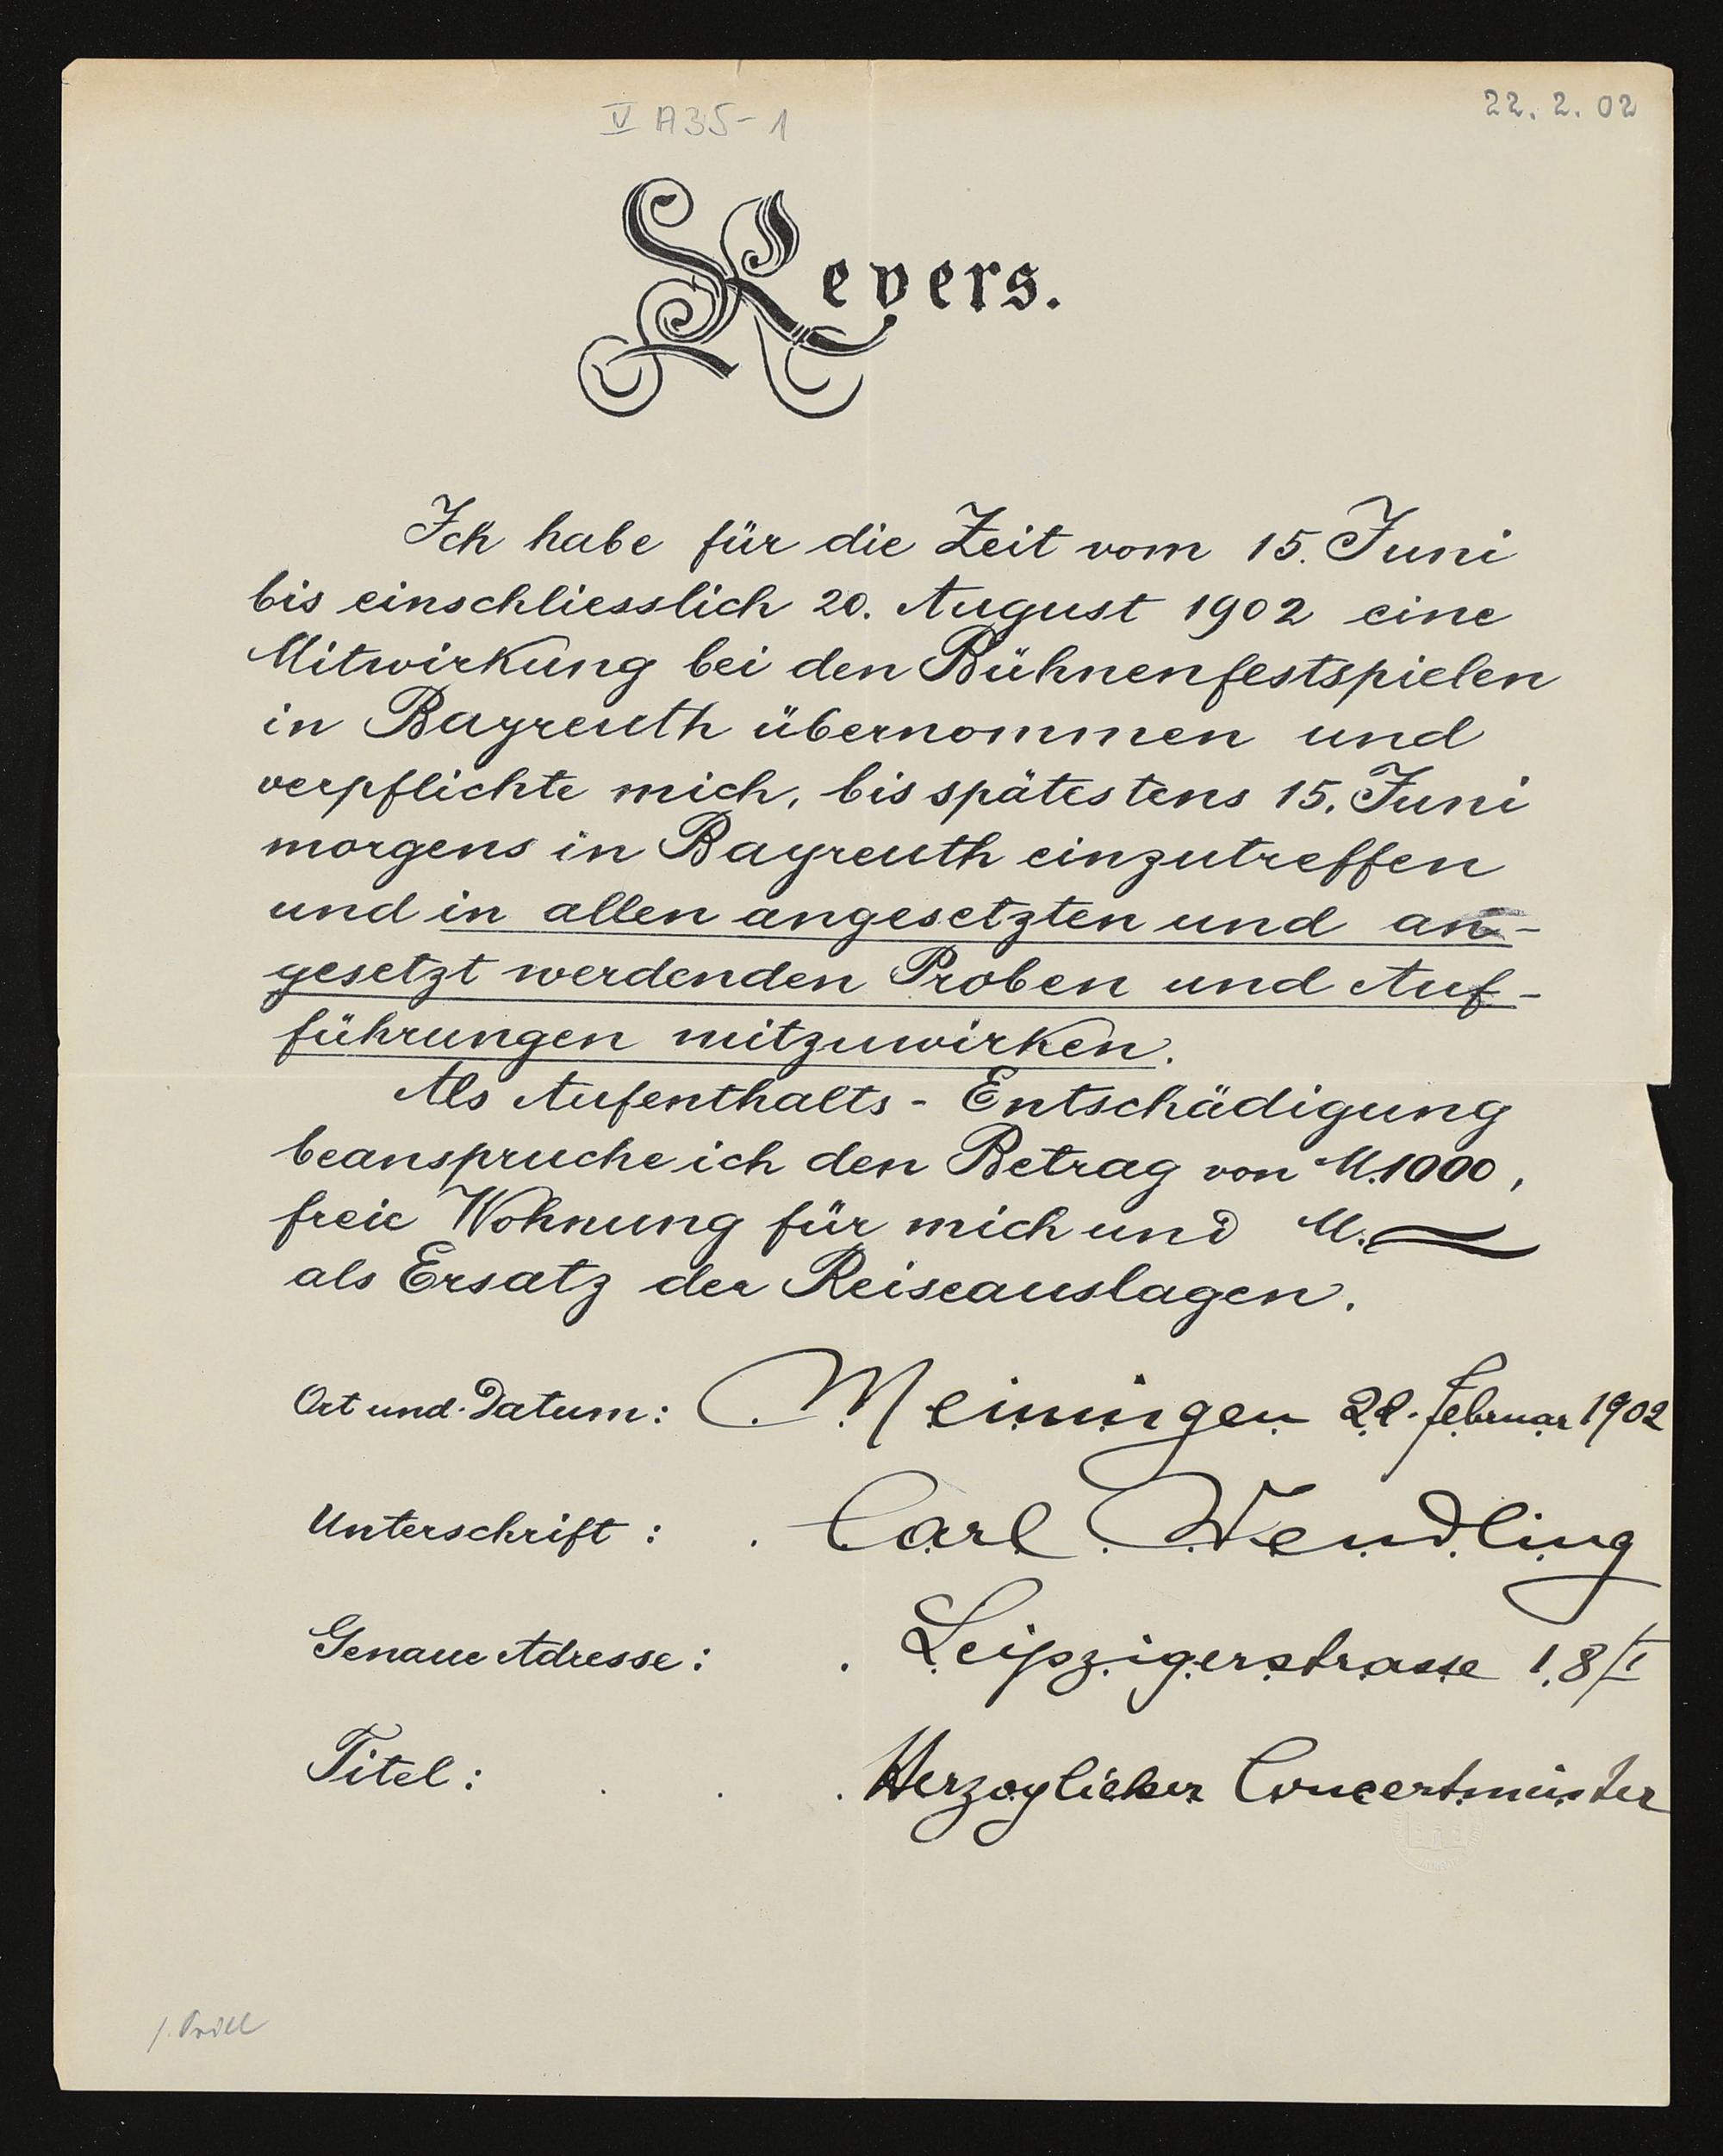 V A35-1
22. 2. 02
Revers.
Ich habe für die Zeit vom 15. Juni
bis einschliesslich 20. August 1902 eine
Mitwirkung bei den Bühnenfestspielen
in Bayreuth übernommen und
verpflichte mich, bis spätestens 15. Juni
morgens in Bayreuth einzutreffen
und in allen angesetzten und an-
gesetzt werdenden Proben und Auf-
führungen mitzuwirken.
Als Aufenthalts-Entschädigung
beanspruche ich den Betrag von M. 1000,
freie Wohnung für mich und M.
als Ersatz der Reiseauslagen.
Ort und Datum: Meiningen 22. Februar 1902
Unterschrift: Carl Wendling
Genaue Adresse: Leipzigerstrasse 18/I
Titel: Herzoglicher Concertmeister